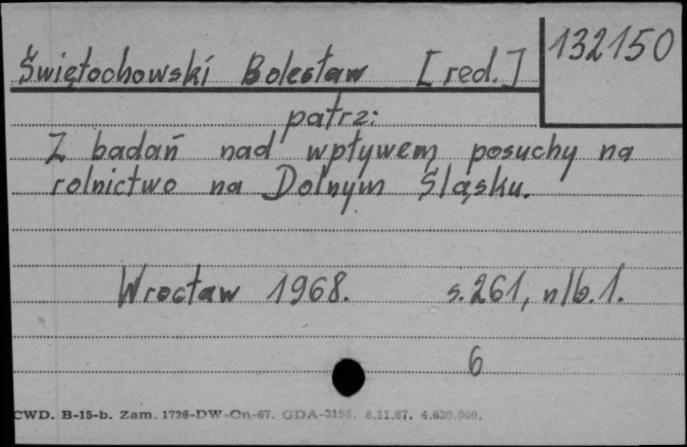 132150
Świętochowski Bolesław [red.]
patrz:
Z badań nad wpływem posuchy na
rolnictwo na Dolnym Śląsku.
Wrocław 1968. s. 261, nlb. 1.
6
CWD. B-15-b. Zam. 1726-DW-Cn-67. GDA-3195. 8.11.67. 4.630.000.